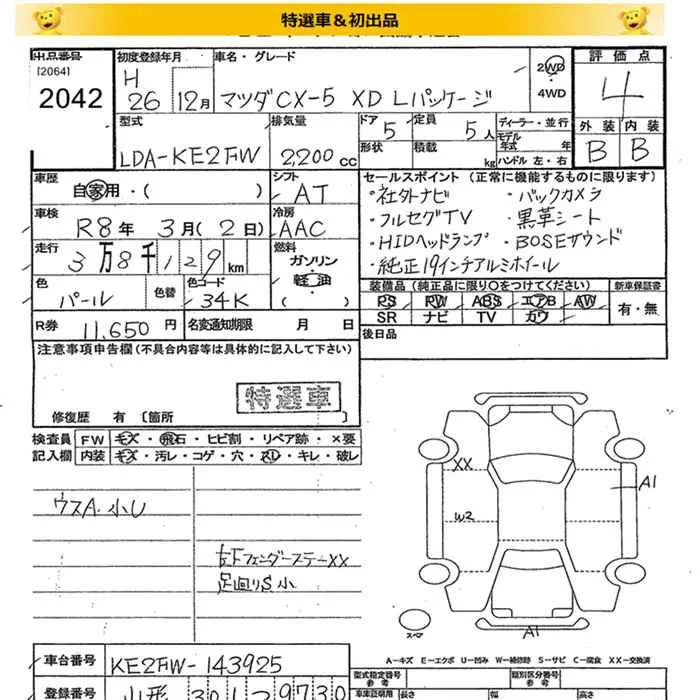 特選車＆初出品
出品番号
[2064]
2042
初度登録年月
H
26 12月
車名・グレード
マツダCX-5 XD Lパッケージ
2WD
4WD
評価点
4
外装 内装
B B
型式
LDA-KE2FW
排気量
2200cc
ドア
5
形状
定員
5人
積載
kg
ディーラー・並行
モデル
年式 年
ハンドル 左・右
車歴
自家用・( )
シフト
AT
車検
R8年 3月(2日)
冷房
AAC
走行
3万8千129km
燃料
ガソリン
・
軽油
色
パール
色替
色コード
34K
R券 11,650円
名変通知期限 月 日
セールスポイント (正常に機能するものに限ります)
・社外ナビ ・バックカメラ
・フルセグTV ・黒革シート
・HIDヘッドランプ ・BOSEサウンド
・純正19インチアルミホイール
装備品(純正品に限り○をつけてください)
PS PW ABS エアB AW
SR ナビ TV カワ
新車保証書
有・無
後日品
注意事項申告欄(不具合内容等は具体的に記入して下さい)
特選車
修復歴 有 〔箇所 〕
検査員
記入欄
FW キズ・飛石・ヒビ割・リペア跡・×要
内装 キズ・汚レ・コゲ・穴・スレ・キレ・破レ
ウスA. 小U
右下フェンダーステーXX
足廻りS小
XX
W2
A1
A1
スペア
A－キズ E－エクボ U－凹み W－補修跡 S－サビ C－腐食 XX－交換済
車台番号 KE2FW-143925
登録番号 山形 301つ9730
型式指定番号
参考
類別区分番号
参考
車庫証明用
参考
長さ 幅 高さ